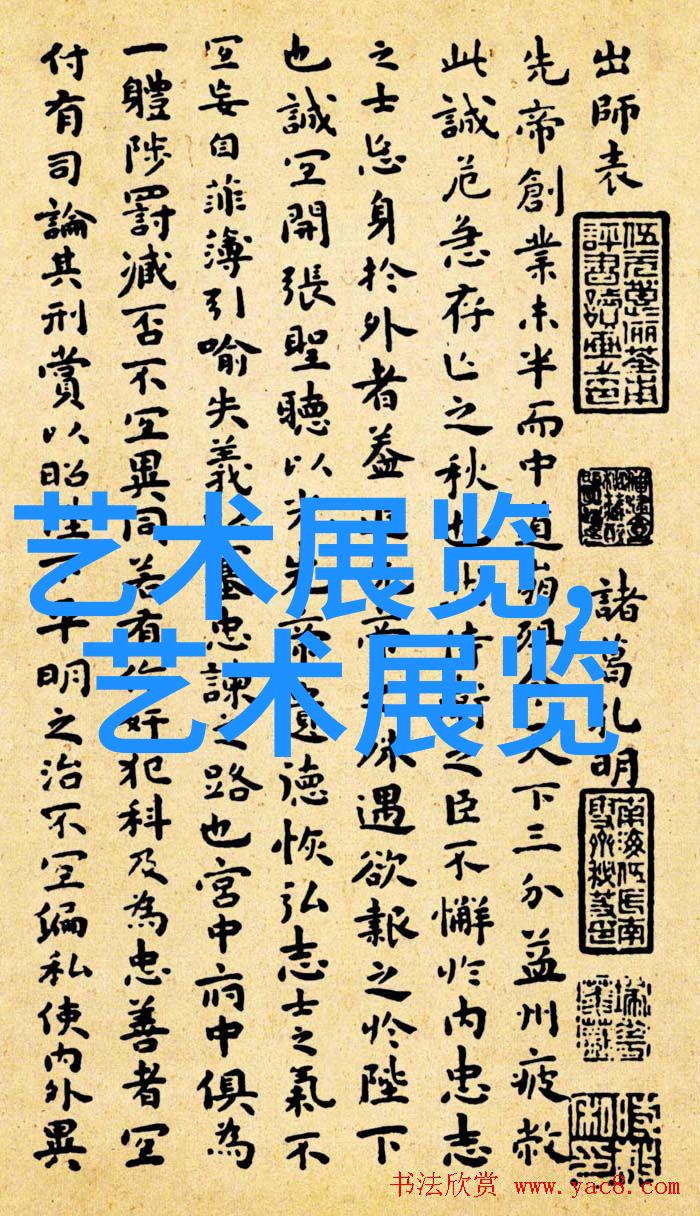 出師表
諸葛孔明
先帝創業未半而中道崩殂今天下三分益州疲敝
此誠危急存亡之秋也然侍衛之臣不懈於内忠志
之士忘身於外者蓋追先帝之殊遇欲報之於陛下
也誠宜開張聖聽以光先帝遺德恢弘志士之氣不
宜妄自菲薄引喻失義以塞忠諫之路也宮中府中俱為
一體陟罰臧否不宜異同若有作奸犯科及為忠善者宜
付有司論其刑賞以昭陛下平明之治不宜偏私使内外異
艺术展览,
艺术展览
书法欣赏 www.yac8.com